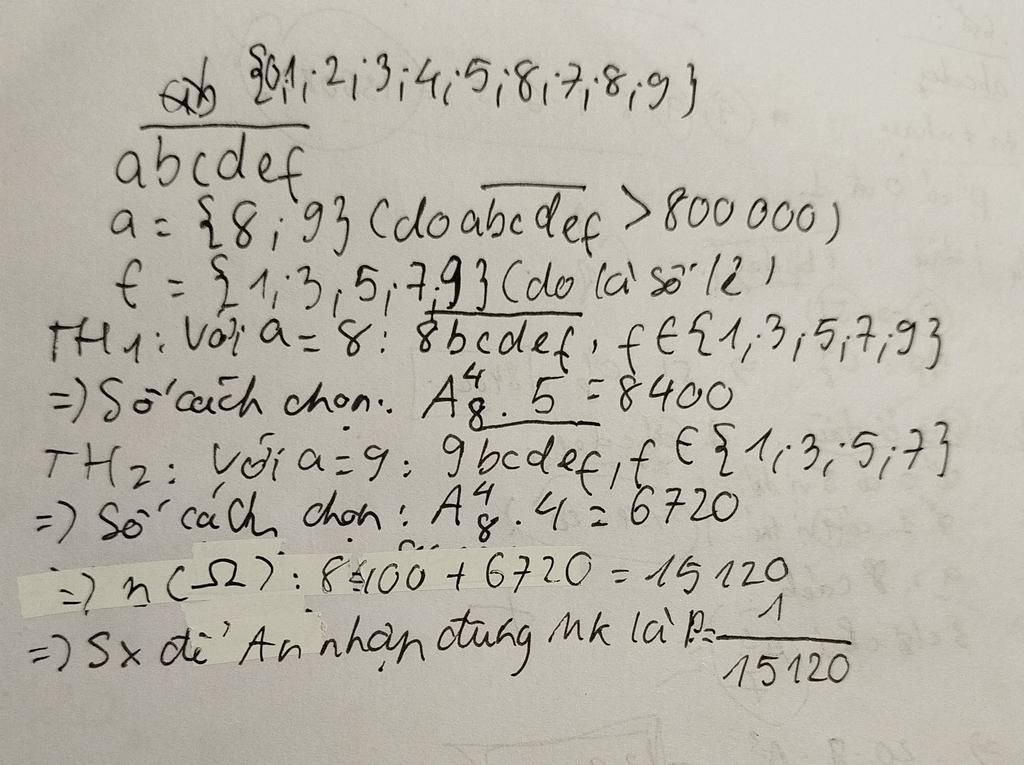 {0,1;2;3;4;5;8;7;8;9}
abcdef
a = {8;9} (do abcdef > 800 000)
f = {1;3;5;7;9} (do là số lẻ)
TH1: Với a = 8: 8bcdef, f ∈ {1;3;5;7;9}
=) Số cách chọn: A⁴₈ . 5 = 8400
TH2: Với a = 9: 9bcdef, f ∈ {1;3;5;7}
=) Số cách chọn: A⁴₈ . 4 = 6720
=) n(Ω): 8400 + 6720 = 15 120
=) Sx để An nhận đúng Mk là P = 1/15120